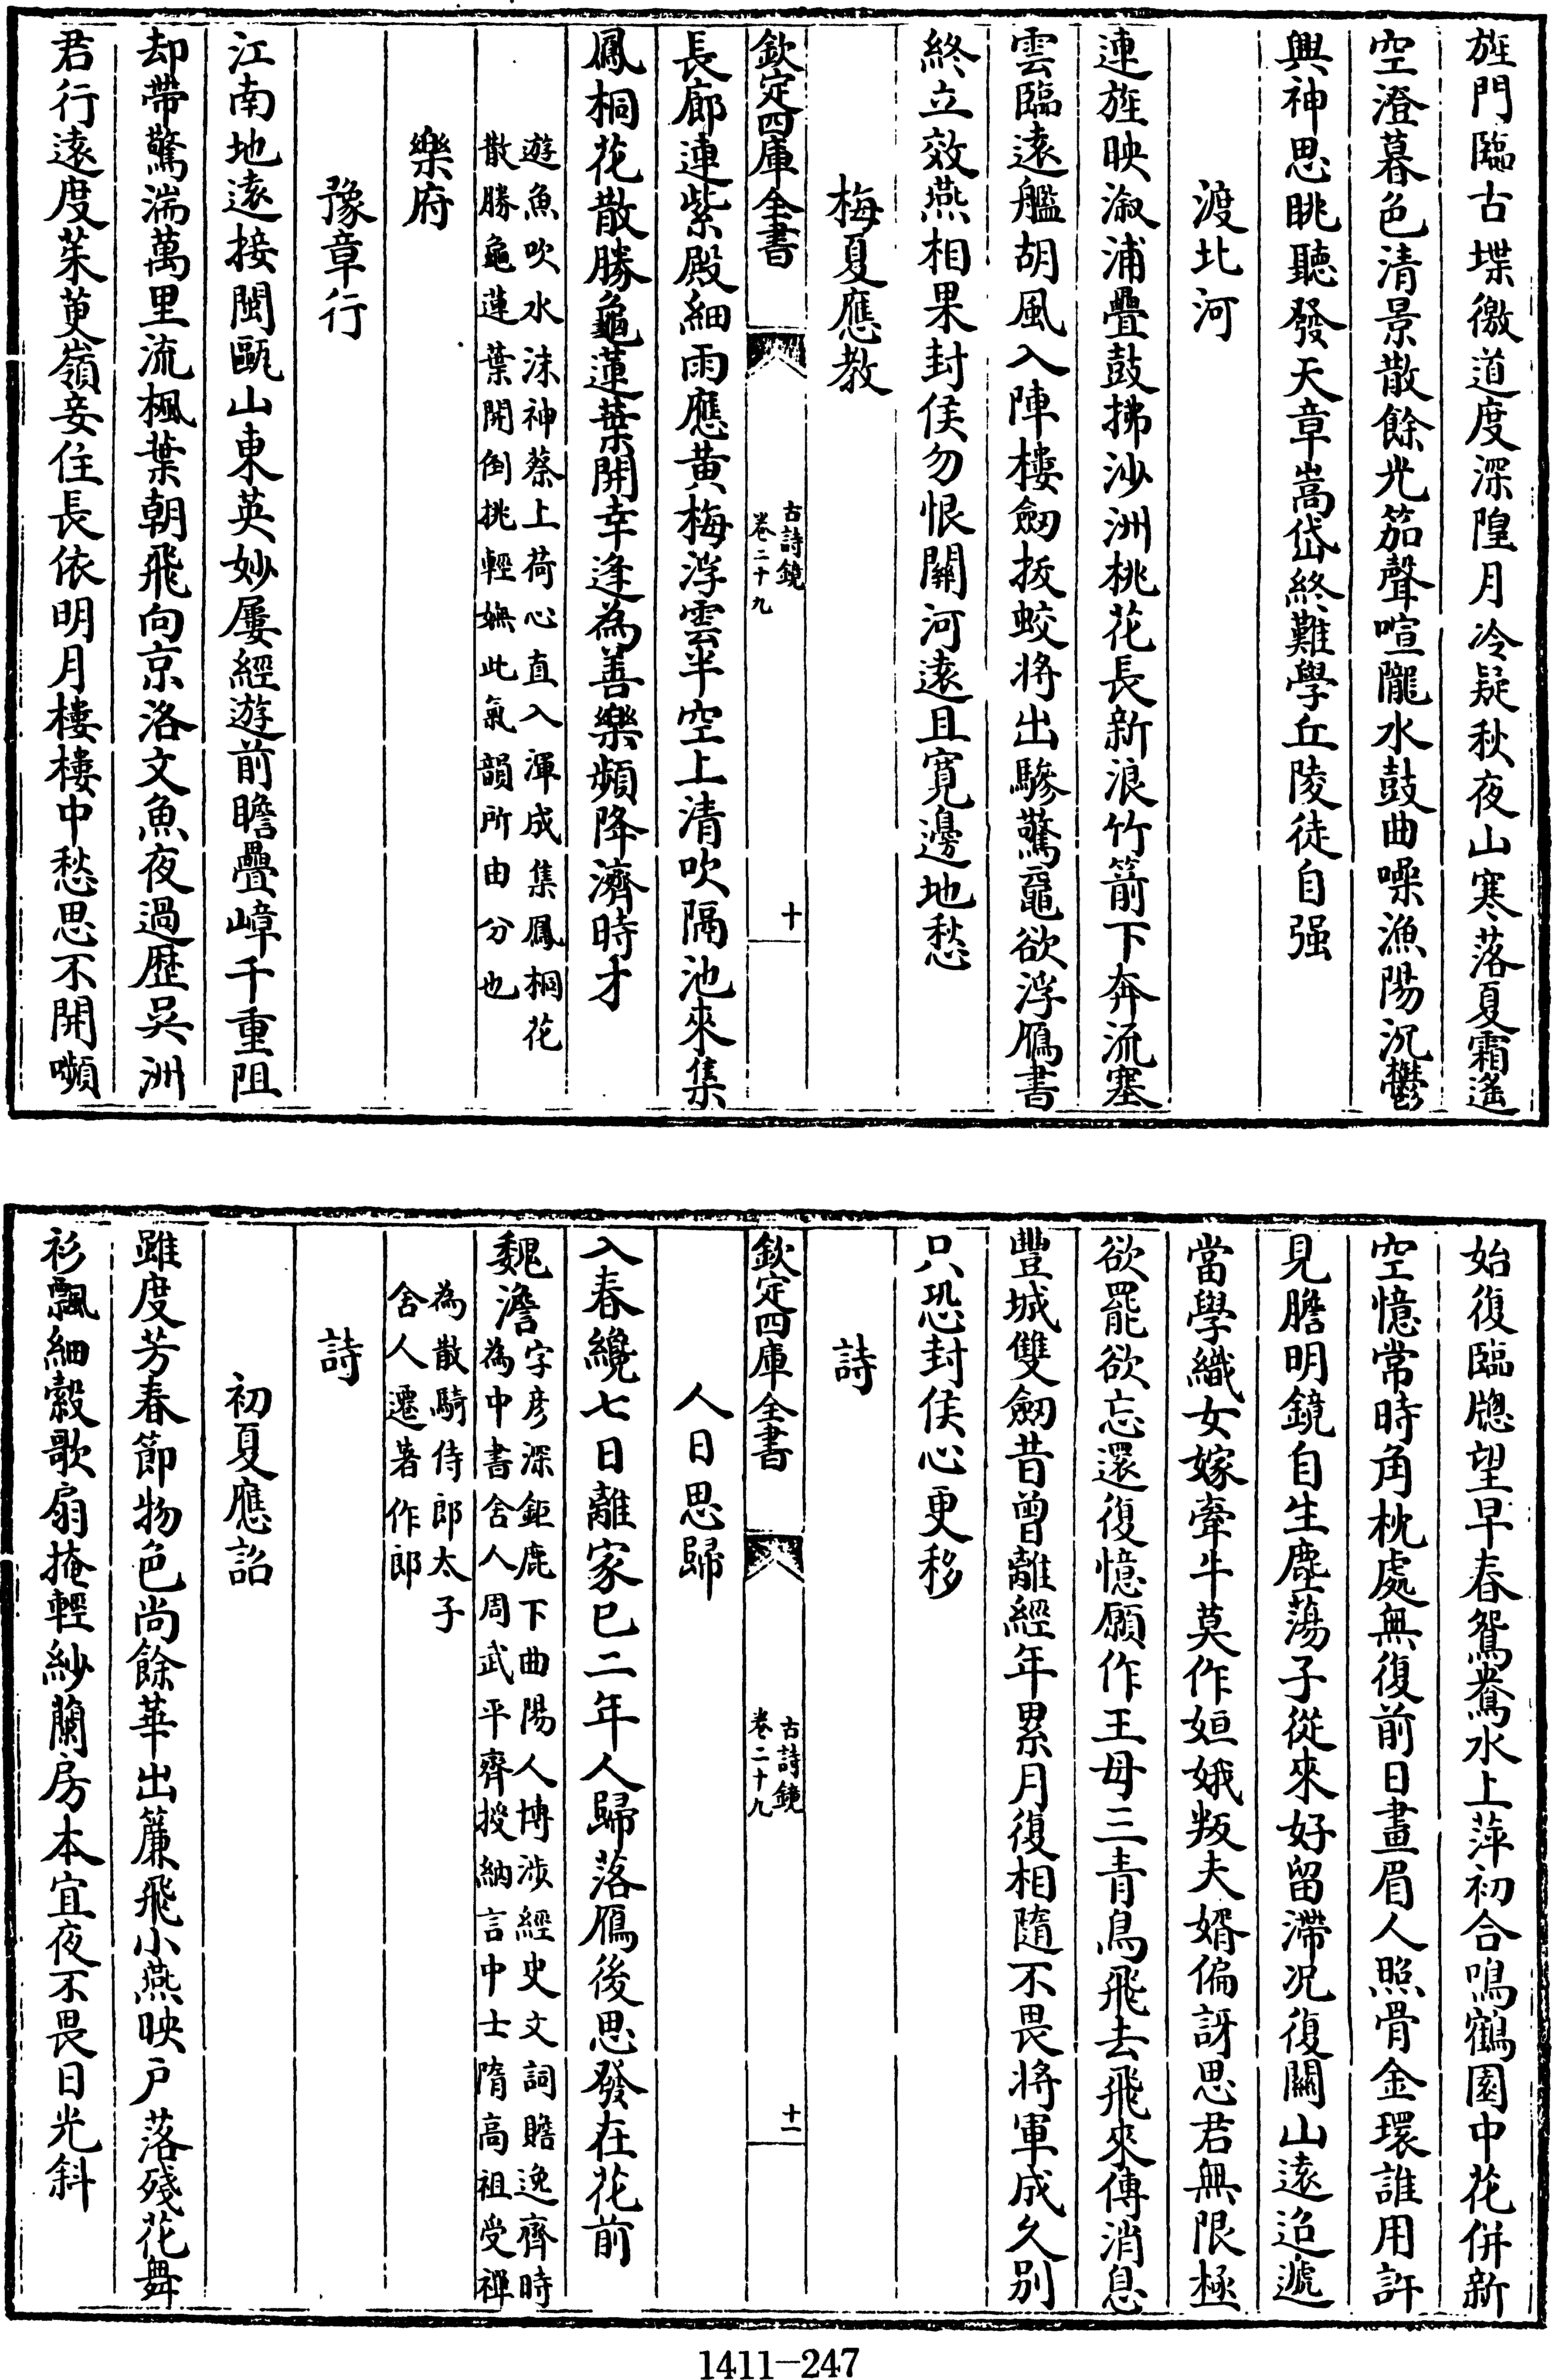 旌門臨古堞徼道度深隍月冷疑秋夜山寒落夏霜遙
空澄暮色清景散餘光笳聲喧隴水鼓曲噪漁陽沉鬱
興神思眺聽發天章嵩岱終難學丘陵徒自强
渡北河
連旌映淑浦疊鼓拂沙洲桃花長新浪竹箭下奔流塞
雲臨遠艦胡風入陣樓劒拔蛟將出驂驚黿欲浮鴈書
終立效燕相果封侯勿恨關河遠且寛邊地愁
梅夏應教
欽定四庫全書
古詩鏡
卷二十九
十
長廊連紫殿細雨應黄梅浮雲半空上清吹隔池來集
鳳桐花散勝龜蓮葉開幸逢為善樂頻降濟時才
遊魚吹水沫神蔡上荷心直入渾成集鳳桐花
散勝龜蓮葉開倒挑輕嫵此氣韻所由分也
樂府
豫章行
江南地遠接閩甌山東英妙屢經遊前瞻疊嶂千重阻
却帶驚湍萬里流楓葉朝飛向京洛文魚夜過歴吳洲
君行遠度茱萸嶺妾住長依明月樓樓中愁思不開嚬
始復臨牕望早春鴛鴦水上萍初合鳴鶴園中花併新
空憶常時角枕處無復前日畫眉人照骨金環誰用許
見膽明鏡自生塵蕩子從來好留滯况復關山遠迢遞
當學織女嫁牽牛莫作姮娥叛夫婿偏訝思君無限極
欲罷欲忘還復憶願作王母三青鳥飛去飛來傳消息
豐城雙劒昔曾離經年累月復相隨不畏將軍成久別
只恐封侯心更移
詩
欽定四庫全書
古詩鏡
卷二十九
十一
人日思歸
入春纔七日離家已二年人歸落鴈後思發在花前
魏澹字彦深鉅鹿下曲陽人博涉經史文詞贍逸齊時
為中書舍人周武平齊授納言中士隋高祖受禪
為散騎侍郎太子
舍人遷著作郎
詩
初夏應詔
雖度芳春節物色尚餘華出簾飛小燕映戶落殘花舞
衫飄細縠歌扇掩輕紗蘭房本宜夜不畏日光斜
1411-247